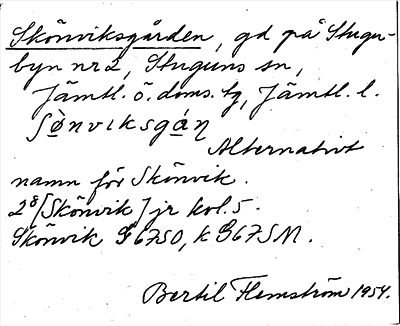 Skönviksgården, gd på Stugu-
byn nr 2, Stuguns sn,
Jämtl. ö. doms. tg, Jämtl. l.
ʃø̀nviksgáη
Alternativt
namn för Skönvik.
2⁸ [Skönvik] jr kol. 5.
Skönvik G 6750, k G 675M.
Bertil Flemström 1954.